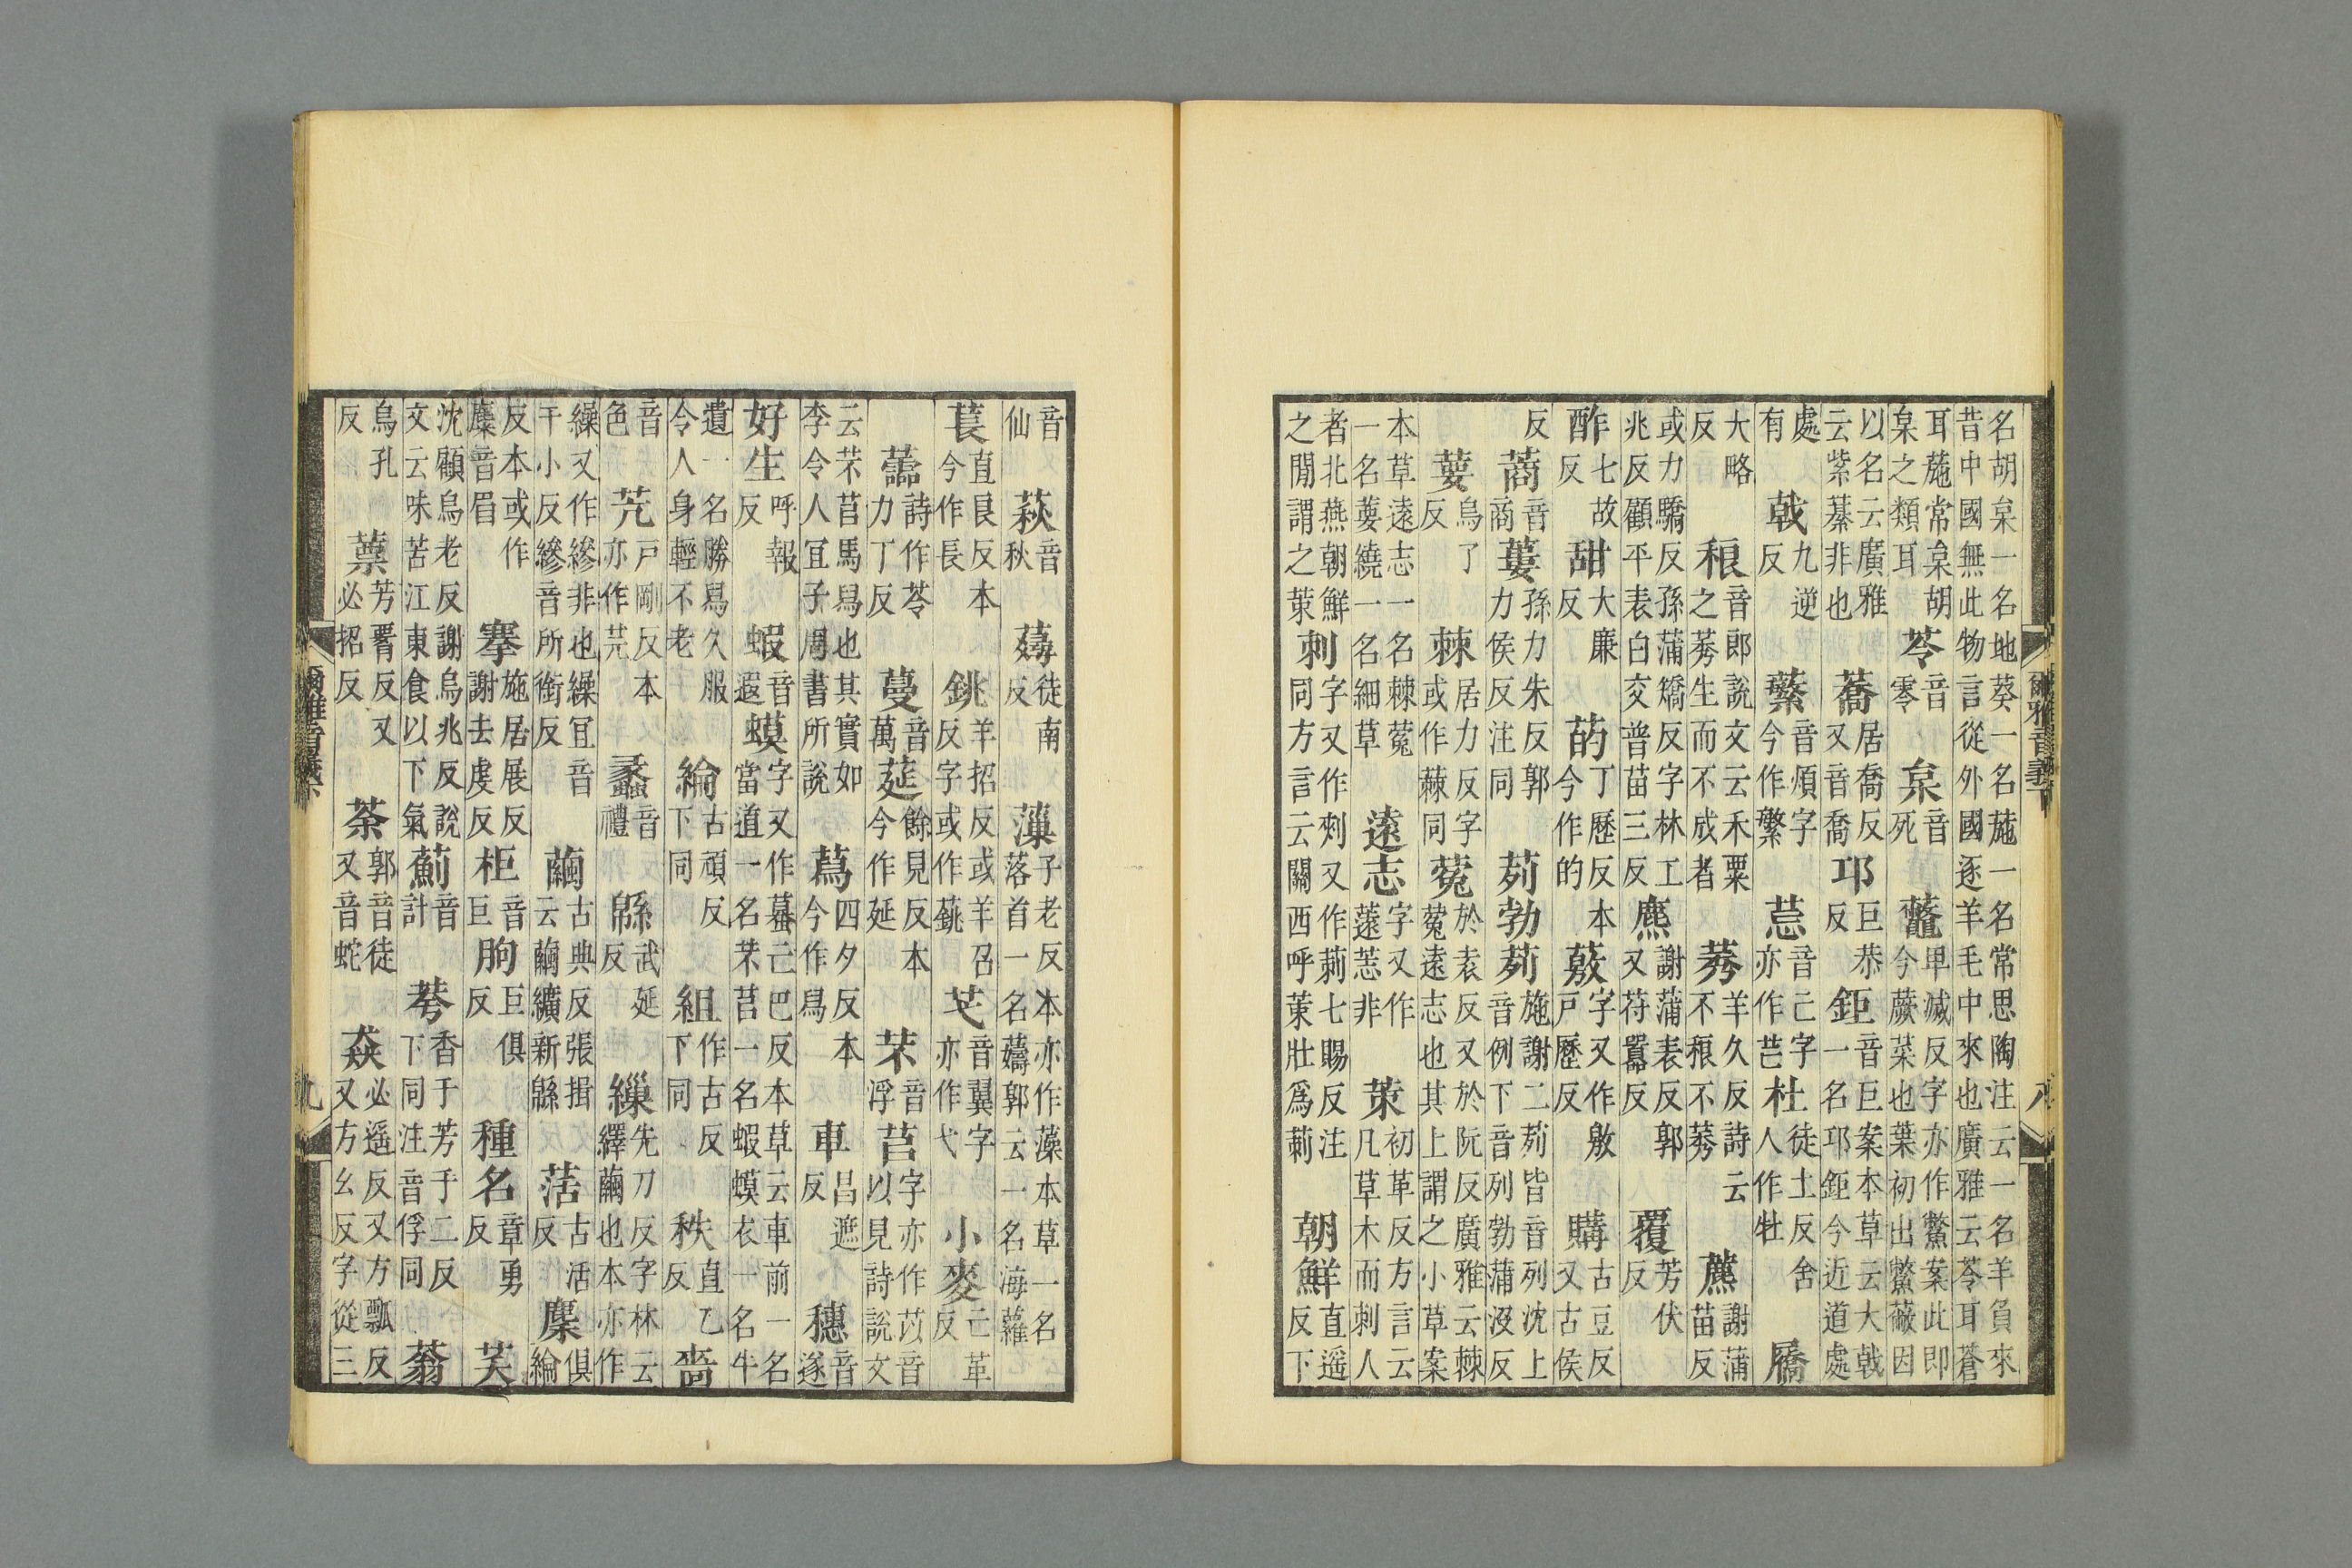 名胡枲一名地葵一名葹一名常思陶注云一名羊負來
昔中國無此物言從外國逐羊毛中來也廣雅云苓耳蒼
耳葹常枲胡枲之類耳 苓 音零 枲 音死 虌 卑滅反字亦作鷩案此即今蕨菜也葉初出鷩蔽因
以名云廣雅云紫藄非也 蕎 居喬反又音喬 邛 巨恭反 鉅 音巨案本草云大戟一名邛鉅今近道處
處有 戟 九逆反 蘩 音煩字今作繁 莣 音亡字亦作芒 杜 徒土反舍人作牡 屩
大略反 稂 音郎說文云禾粟之莠生而不成者 莠 羊久反詩云不稂不莠 藨 謝蒲苗反
或力驕反孫蒲矯反字林工兆反顧平表白交普苗三反 麃 謝蒲表反郭又苻囂反 覆 芳伏反
酢 七故反 甜 大廉反 菂 丁歷反本今作的 蔜 字又作敫戶歷反 購 古豆反又古侯
反 蔏 音商 蔞 孫力朱反郭力侯反注同 茢勃茢 施謝二茢皆音列沈上音例下音列勃蒲沒反
葽 烏了反 棘 居力反字或作蕀同 蒬 於袁反又於阮反廣雅云棘蒬遠志也其上謂之小草案
本草遠志一名棘菀一名葽繞一名細草 遠志 字又作薳𦸂非 茦 初革反方言云凡草木而刺人
者北燕朝鮮之閒謂之茦 刺 字又作㓨又作莿七賜反注同方言云關西呼茦壯爲莿 朝鮮 直遥反下
音仙 萩 音秋 蕁 徒南反 薻 子老反本亦作藻本草一名落首一名薚郭云一名海蘿
萇 直良反本今作長 銚 羊招反或羊召反字或作䔙 芅 音翼字亦作弋 小麥 亡革反
蘦 詩作苓力丁反 蔓 音萬 莚 餘見反本今作延 芣 音浮 苢 字亦作苡音以見詩說文
云芣苢馬舄也其實如李令人宜子周書所說 蕮 四夕反本今作舄 車 昌遮反 穗 音遂
好生 呼報反 蝦 音遐 蟆 字又作蟇亡巴反本草云車前一名當道一名芣苢一名蝦蟆衣一名牛
遺一名勝舄久服令人身輕不老 綸 古頑反下同 組 作古反下同 秩 直乙反 嗇
音色 䒢 戶剛反本亦作苀 蠡 音禮 緜 武延反 繅 先刀反字林云繹繭也本亦作
繰又作縿非也繰宜音干小反縿音所銜反 繭 古典反張揖云繭纊新緜 萿 古活反 麋 俱綸
反本或作麋音眉 搴 施居展反謝去虔反 柜 音巨 朐 巨俱反 種名 章勇反 芺
沈顧烏老反謝烏兆反說文云味苦江東食以下氣 薊 音計 荂 香于芳于二反下同注音俘同 蓊
烏孔反 蔈 芳脣反又必招反 荼 郭音徒又音蛇 猋 必遥反又方瓢反又方幺反字從三
爾雅音義下
八
九